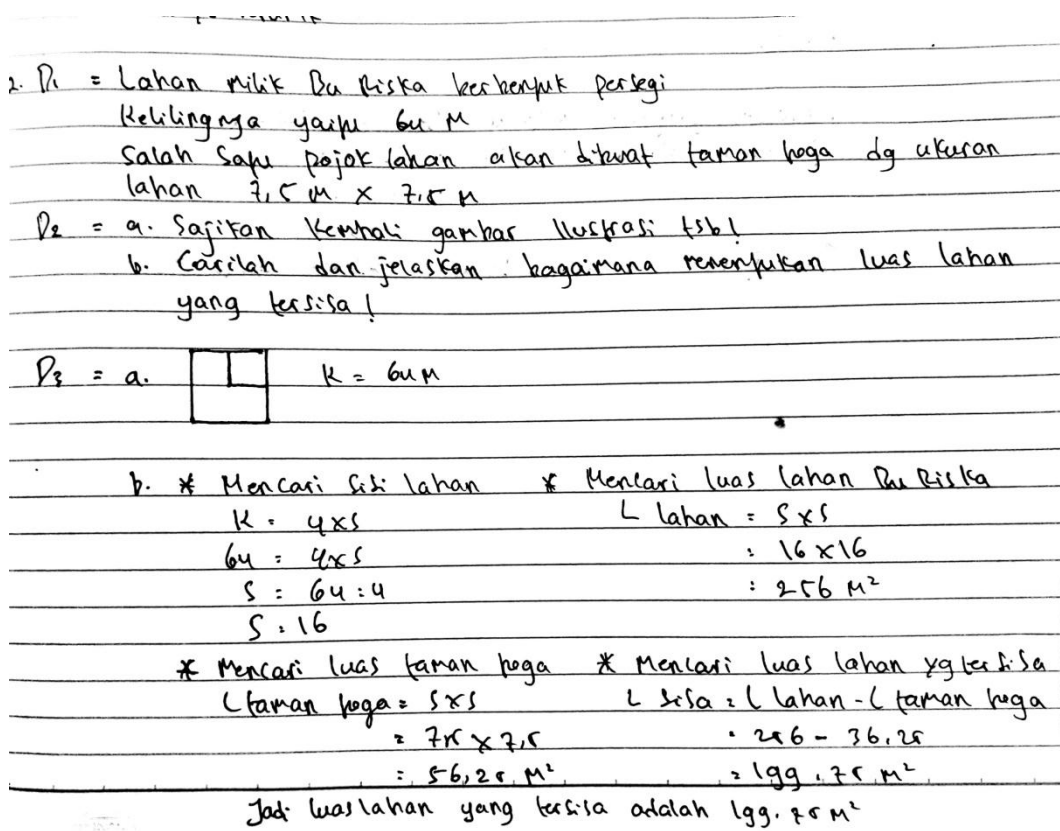 2. D1 = Lahan milik Bu Riska berbentuk persegi
Kelilingnya yaitu 64 M
Salah Satu pojok lahan akan dibuat taman toga dg ukuran
lahan 7,5 M x 7,5 M
D2 = a. Sajikan kembali gambar Ilustrasi tsb!
b. Carilah dan jelaskan bagaimana menentukan luas lahan
yang tersisa!
D3 = a. K = 64 M
b. * Mencari sisi lahan * Mencari luas lahan Bu Riska
K = 4xS L lahan = SxS
64 = 4xS : 16x16
S = 64:4 : 256 M²
S : 16
* Mencari luas taman toga * Mencari luas lahan yg tersisa
L taman toga = SxS L sisa = L lahan - L taman toga
= 75 x 7,5 = 256 - 36,25
: 56,25 M² = 199.75 M²
Jadi luas lahan yang tersisa adalah 199.75 M²